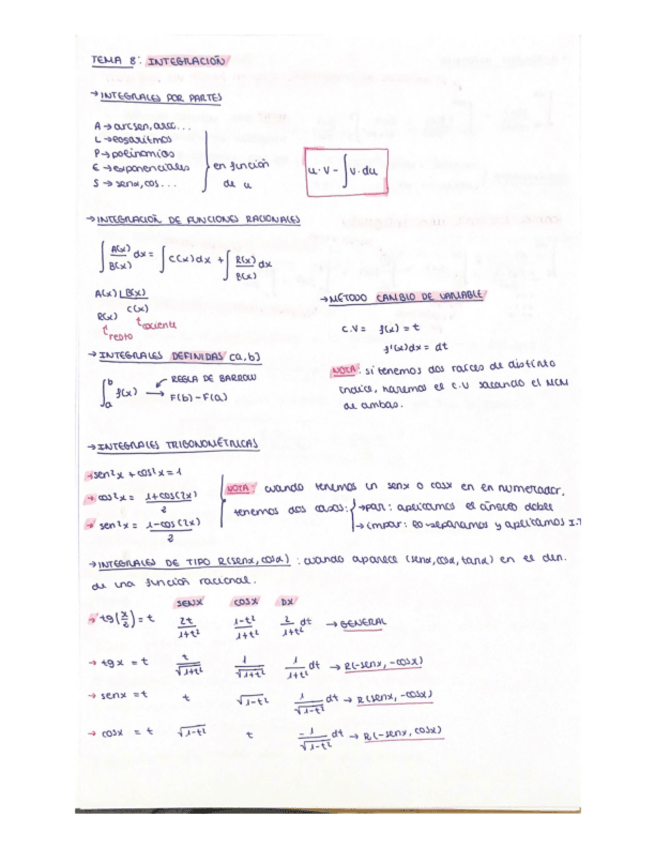 TEMA 8: INTEGRACIÓN
→ INTEGRALES POR PARTES
A → arcsen, arcc...
L → logaritmos
P → polinomios
E → exponenciales
S → senx, cos...
en función de u
u·v - ∫v·du
→ INTEGRACIÓN DE FUNCIONES RACIONALES
∫ A(x)/B(x) dx = ∫ C(x)dx + ∫ R(x)/B(x) dx
A(x) | B(x)
R(x) C(x)
resto cociente
→ MÉTODO CAMBIO DE VARIABLE
C.V = f(x) = t
f'(x)dx = dt
NOTA: si tenemos dos raíces de distinto
índice, haremos el C.V sacando el MCM
de ambas.
→ INTEGRALES DEFINIDAS (a,b)
∫ₐᵇ f(x) → REGLA DE BARROW
F(b) - F(a)
→ INTEGRALES TRIGONOMÉTRICAS
→ sen²x + cos²x = 1
→ cos²x = 1+cos(2x)/2
→ sen²x = 1-cos(2x)/2
NOTA: cuando tenemos un senx o cosx en en numerador,
tenemos dos casos:
→ par: aplicamos el ángulo doble
→ impar: lo separamos y aplicamos I.T
→ INTEGRALES DE TIPO R(senx, cosx): cuando aparece (senx, cosx, tanx) en el den.
de una función racional.
SENX COSX DX
→ tg(x/2) = t 2t/1+t² 1-t²/1+t² 2/1+t² dt → GENERAL
→ tgx = t t/√1+t² 1/√1+t² 1/1+t² dt → R(-senx, -cosx)
→ senx = t t √1-t² 1/√1-t² dt → R(senx, -cosx)
→ cosx = t √1-t² t -1/√1-t² dt → R(-senx, cosx)